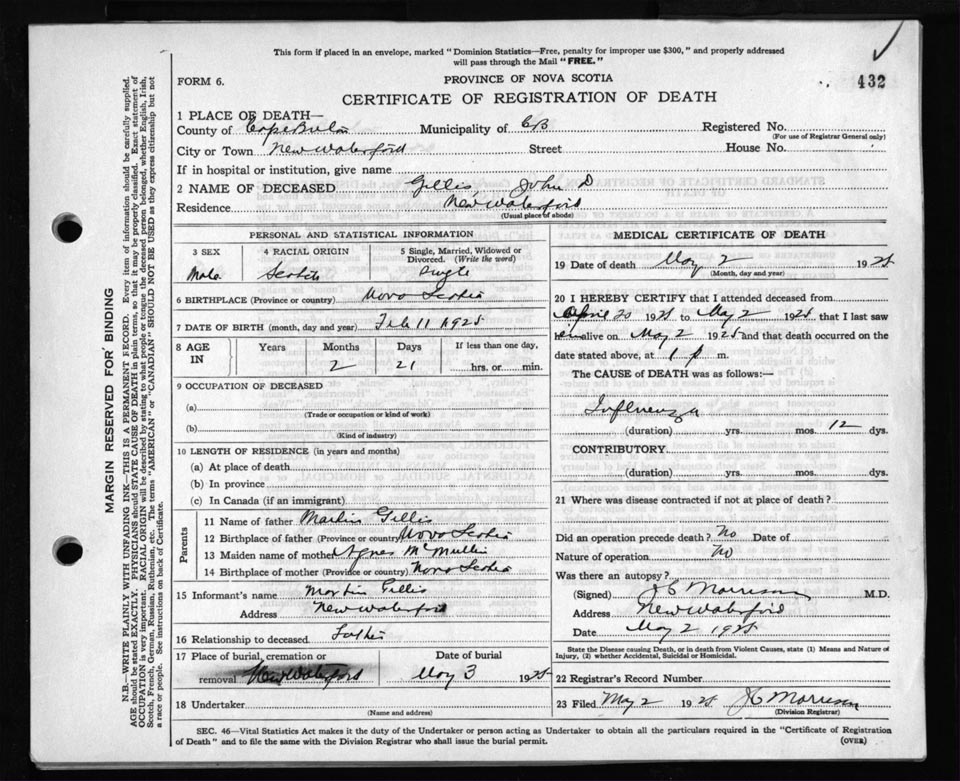 This form if placed in an envelope, marked "Dominion Statistics—Free, penalty for improper use $300," and properly addressed
will pass through the Mail "FREE."
FORM 6.
PROVINCE OF NOVA SCOTIA
432
CERTIFICATE OF REGISTRATION OF DEATH
1 PLACE OF DEATH—
County of Cape Breton Municipality of CB Registered No.
(For use of Registrar General only)
City or Town New Waterford Street House No.
If in hospital or institution, give name
2 NAME OF DECEASED Gillis, John D
Residence New Waterford
(Usual place of abode)
PERSONAL AND STATISTICAL INFORMATION
3 SEX 4 RACIAL ORIGIN 5 Single, Married, Widowed or
Divorced. (Write the word)
Male Scotch Single
6 BIRTHPLACE (Province or country) Nova Scotia
7 DATE OF BIRTH (month, day and year) Feb 11 1925
8 AGE IN Years Months Days If less than one day,
2 21 hrs. or min.
9 OCCUPATION OF DECEASED
(a)
(Trade or occupation or kind of work)
(b)
(Kind of industry)
10 LENGTH OF RESIDENCE (in years and months)
(a) At place of death
(b) In province
(c) In Canada (if an immigrant)
Parents
11 Name of father Martin Gillis
12 Birthplace of father (Province or country) Nova Scotia
13 Maiden name of mother Agnes McMullin
14 Birthplace of mother (Province or country) Nova Scotia
15 Informant's name Martin Gillis
Address New Waterford
16 Relationship to deceased Father
17 Place of burial, cremation or Date of burial
removal New Waterford May 3 1925
18 Undertaker
(Name and address)
MEDICAL CERTIFICATE OF DEATH
19 Date of death May 2 1925
(Month, day and year)
20 I HEREBY CERTIFY that I attended deceased from
April 20 1925 to May 2 1925 that I last saw
him alive on May 2 1925 and that death occurred on the
date stated above, at 1 p m.
The CAUSE of DEATH was as follows:—
Influenza
(duration) yrs. mos. 12 dys.
CONTRIBUTORY
(duration) yrs. mos. dys.
21 Where was disease contracted if not at place of death?
Did an operation precede death? No Date of
Nature of operation No
Was there an autopsy?
(Signed) J C Morrison M.D.
Address New Waterford
Date May 2 1925
State the Disease causing Death, or in death from Violent Causes, state (1) Means and Nature of
Injury, (2) whether Accidental, Suicidal or Homicidal.
22 Registrar's Record Number
23 Filed May 2 1925 J C Morrison
(Division Registrar)
SEC. 46—Vital Statistics Act makes it the duty of the Undertaker or person acting as Undertaker to obtain all the particulars required in the "Certificate of Registration
of Death" and to file the same with the Division Registrar who shall issue the burial permit.
(OVER)
MARGIN RESERVED FOR BINDING
N.B.—WRITE PLAINLY WITH UNFADING INK—THIS IS A PERMANENT RECORD. Every item of information should be carefully supplied.
AGE should be stated EXACTLY. PHYSICIANS should STATE CAUSE OF DEATH in plain terms, so that it may be properly classified. Exact statement of
OCCUPATION is very important. RACIAL ORIGIN will be described by stating to what people or race the deceased person belonged, whether English, Irish,
Scotch, French, German, Russian, Ruthenian, etc. The terms "AMERICAN" or "CANADIAN" SHOULD NOT BE USED as they express citizenship but not
a race or people. See instructions on back of Certificate.